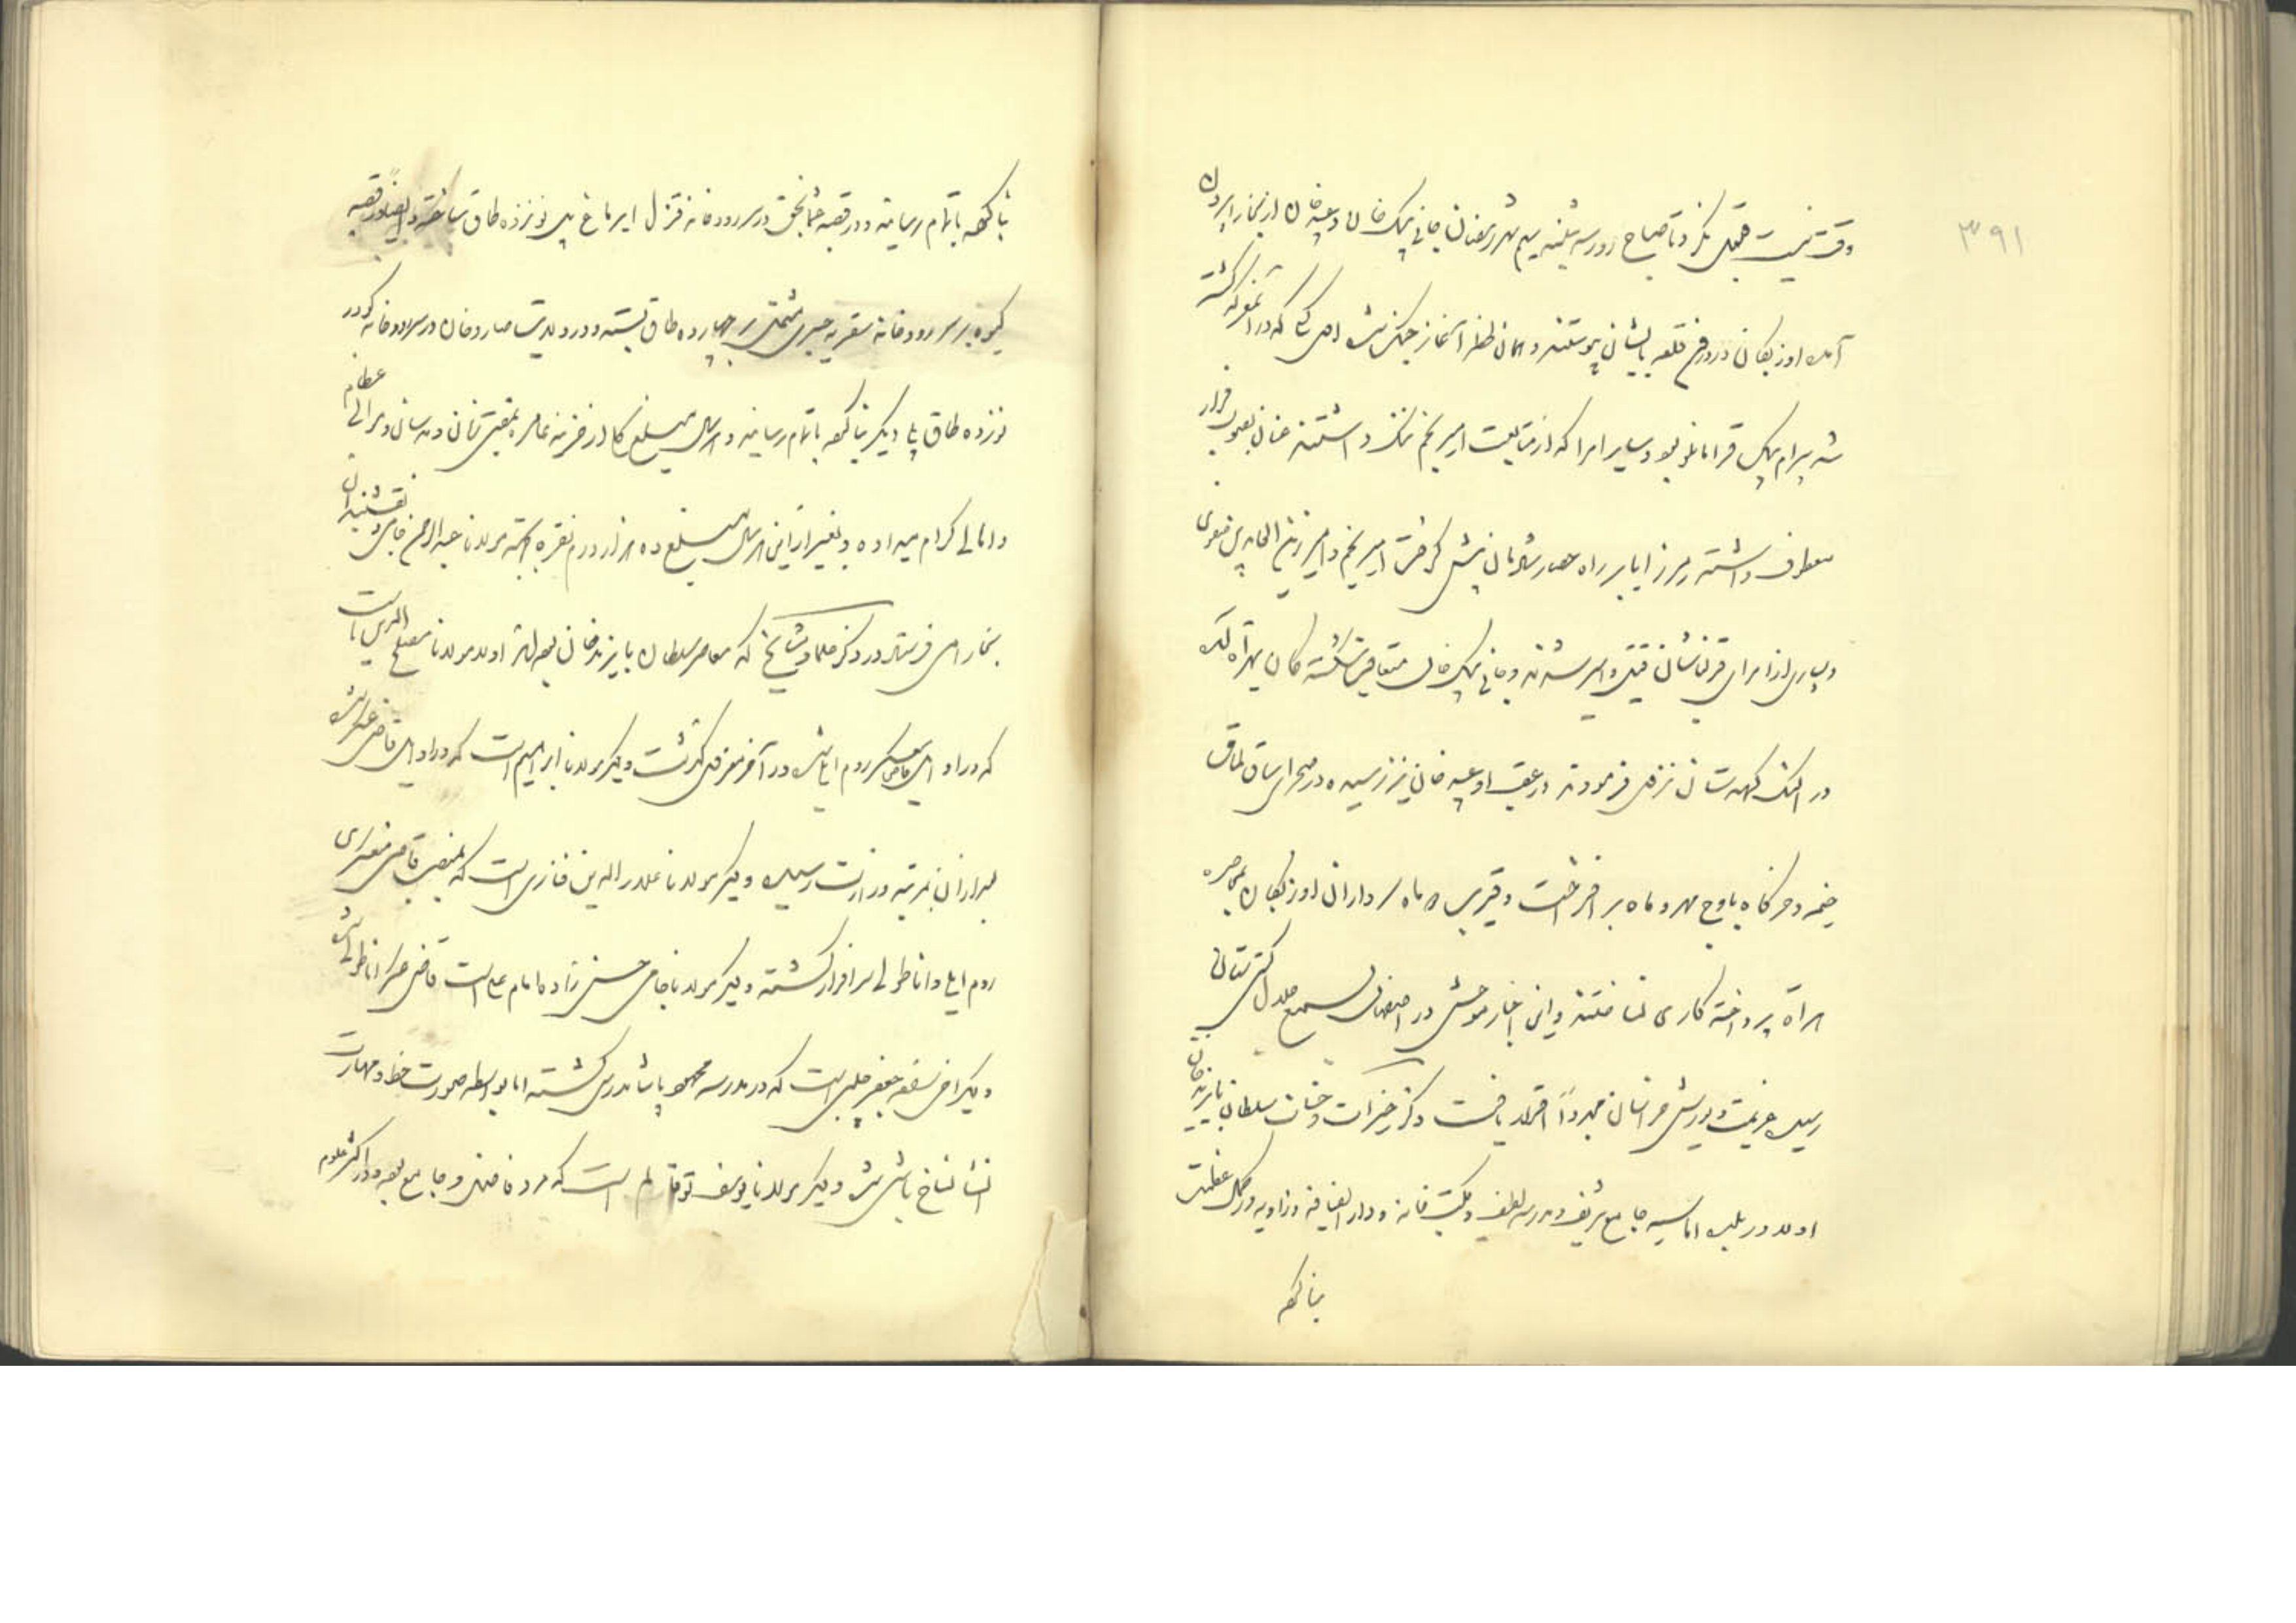 ۳۹۱
وقت نیست قبول نکرد تا صباح روز سه شنبه سیم شهر رمضان جانی بیک خان و عبید خان از بخارا بیرون
آمده اوزبکان در درون قلعه بایشان پیوستند و همان لحظه آغاز جنگ شد اول کسی که در آن معرکه کشته
شد بیرام بیک قرامانلو بود و سایر امرا که از متابعت امیر نجم ننگ داشتند عنان بصوب فرار
معطوف داشته میرزا بابر راه حصار شادمان پیش گرفت امیر نجم و امیر زین العابدین صفوی
و بسیاری از امرای قزلباش قتیل و اسیر شدند و جانی بیک خان متعاقب شکسته کان بهراة آمده
در النگ کهدستان نزول فرمودند در عقب او عبید خان نیز رسیده در صحرای ساق سلمان
خیمه و خرگاه باوج مهر و ماه بر افراخت و قریب دو ماه سرداران اوزبکان بمحاصره
هراة پرداخته کاری نساختند و این اخبار موحش در اصفهان بسمع جلال کشورستانی
رسیده عزیمت یورش خراسان مجدداً قرار یافت ذکر خیرات و حسنات سلطان بایزید خان
اولا در بلده اماسیه جامع شریف و مدرسه لطیف و مکتب خانه و دار الضیافه و زاویه در کمال عظمت
بنا کرده
بنا کرده باتمام رسانید و در قصبه عثمانجق در سر رودخانه قزل ایرماغ پل نوزده طاق ساخته و ایضاً در قصبه
کیوه بر سر رودخانه سقریه جسری مشتمل بر چهارده طاق بسته و در ولایت صاروخان در سر رودخانه کودز
نوزده طاق پل دیگر بنا کرده باتمام رسانید و هر سال مبلغ کلی از خزینه عامره بمفتی زمان و مدرسان و موالی عظام
و اهالی کرام میداده و بغیر از این هر سال مبلغ ده هزار درم نقره بجهة مولانا عبدالرحمن جامی و نقشبندیان
بخارا می فرستاد در ذکر علما و مشایخ که معاصر سلطان بایزید خان بوده اند اولا مولانا مصلح الدین است
که در اوایل قاضی عسکر روم ایلی شد در آخر معزول گشت و دیگر مولانا ابراهیم است که در اوایل قاضی عسکر شد
بعد از آن بمرتبه وزارت رسیده و دیگر مولانا علاء الدین فناری است که بمنصب قاضی عسکری
روم ایلی و اناطولی سرافراز گشته و دیگر مولانا حاجی حسن زاده امام علی است قاضی عسکر اناطولی شد
و دیگر جعفر چلبی است که در مدرسه محمود پاشا مدرس گشته اما بواسطه صورت خط و مهارت
انشا نشانجی باشی شد و دیگر مولانا یوسف توقاتی است که مرد فاضل و جامع بود و در اکثر علوم